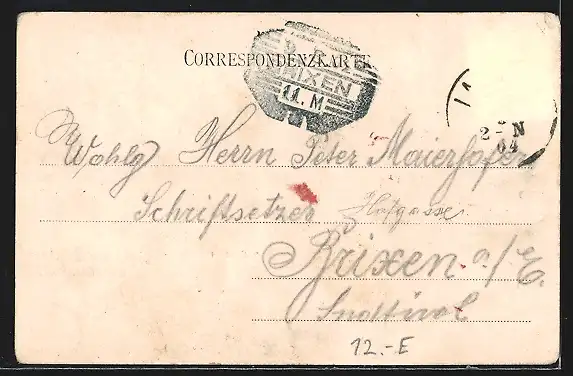 CORRESPONDENZKARTE
BRIXEN
11. M
2- N
04
Wohlg Herrn Peter Maierhofer
Schriftsetzer Hofgasse
Brixen a/E.
Südtirol
12.-E